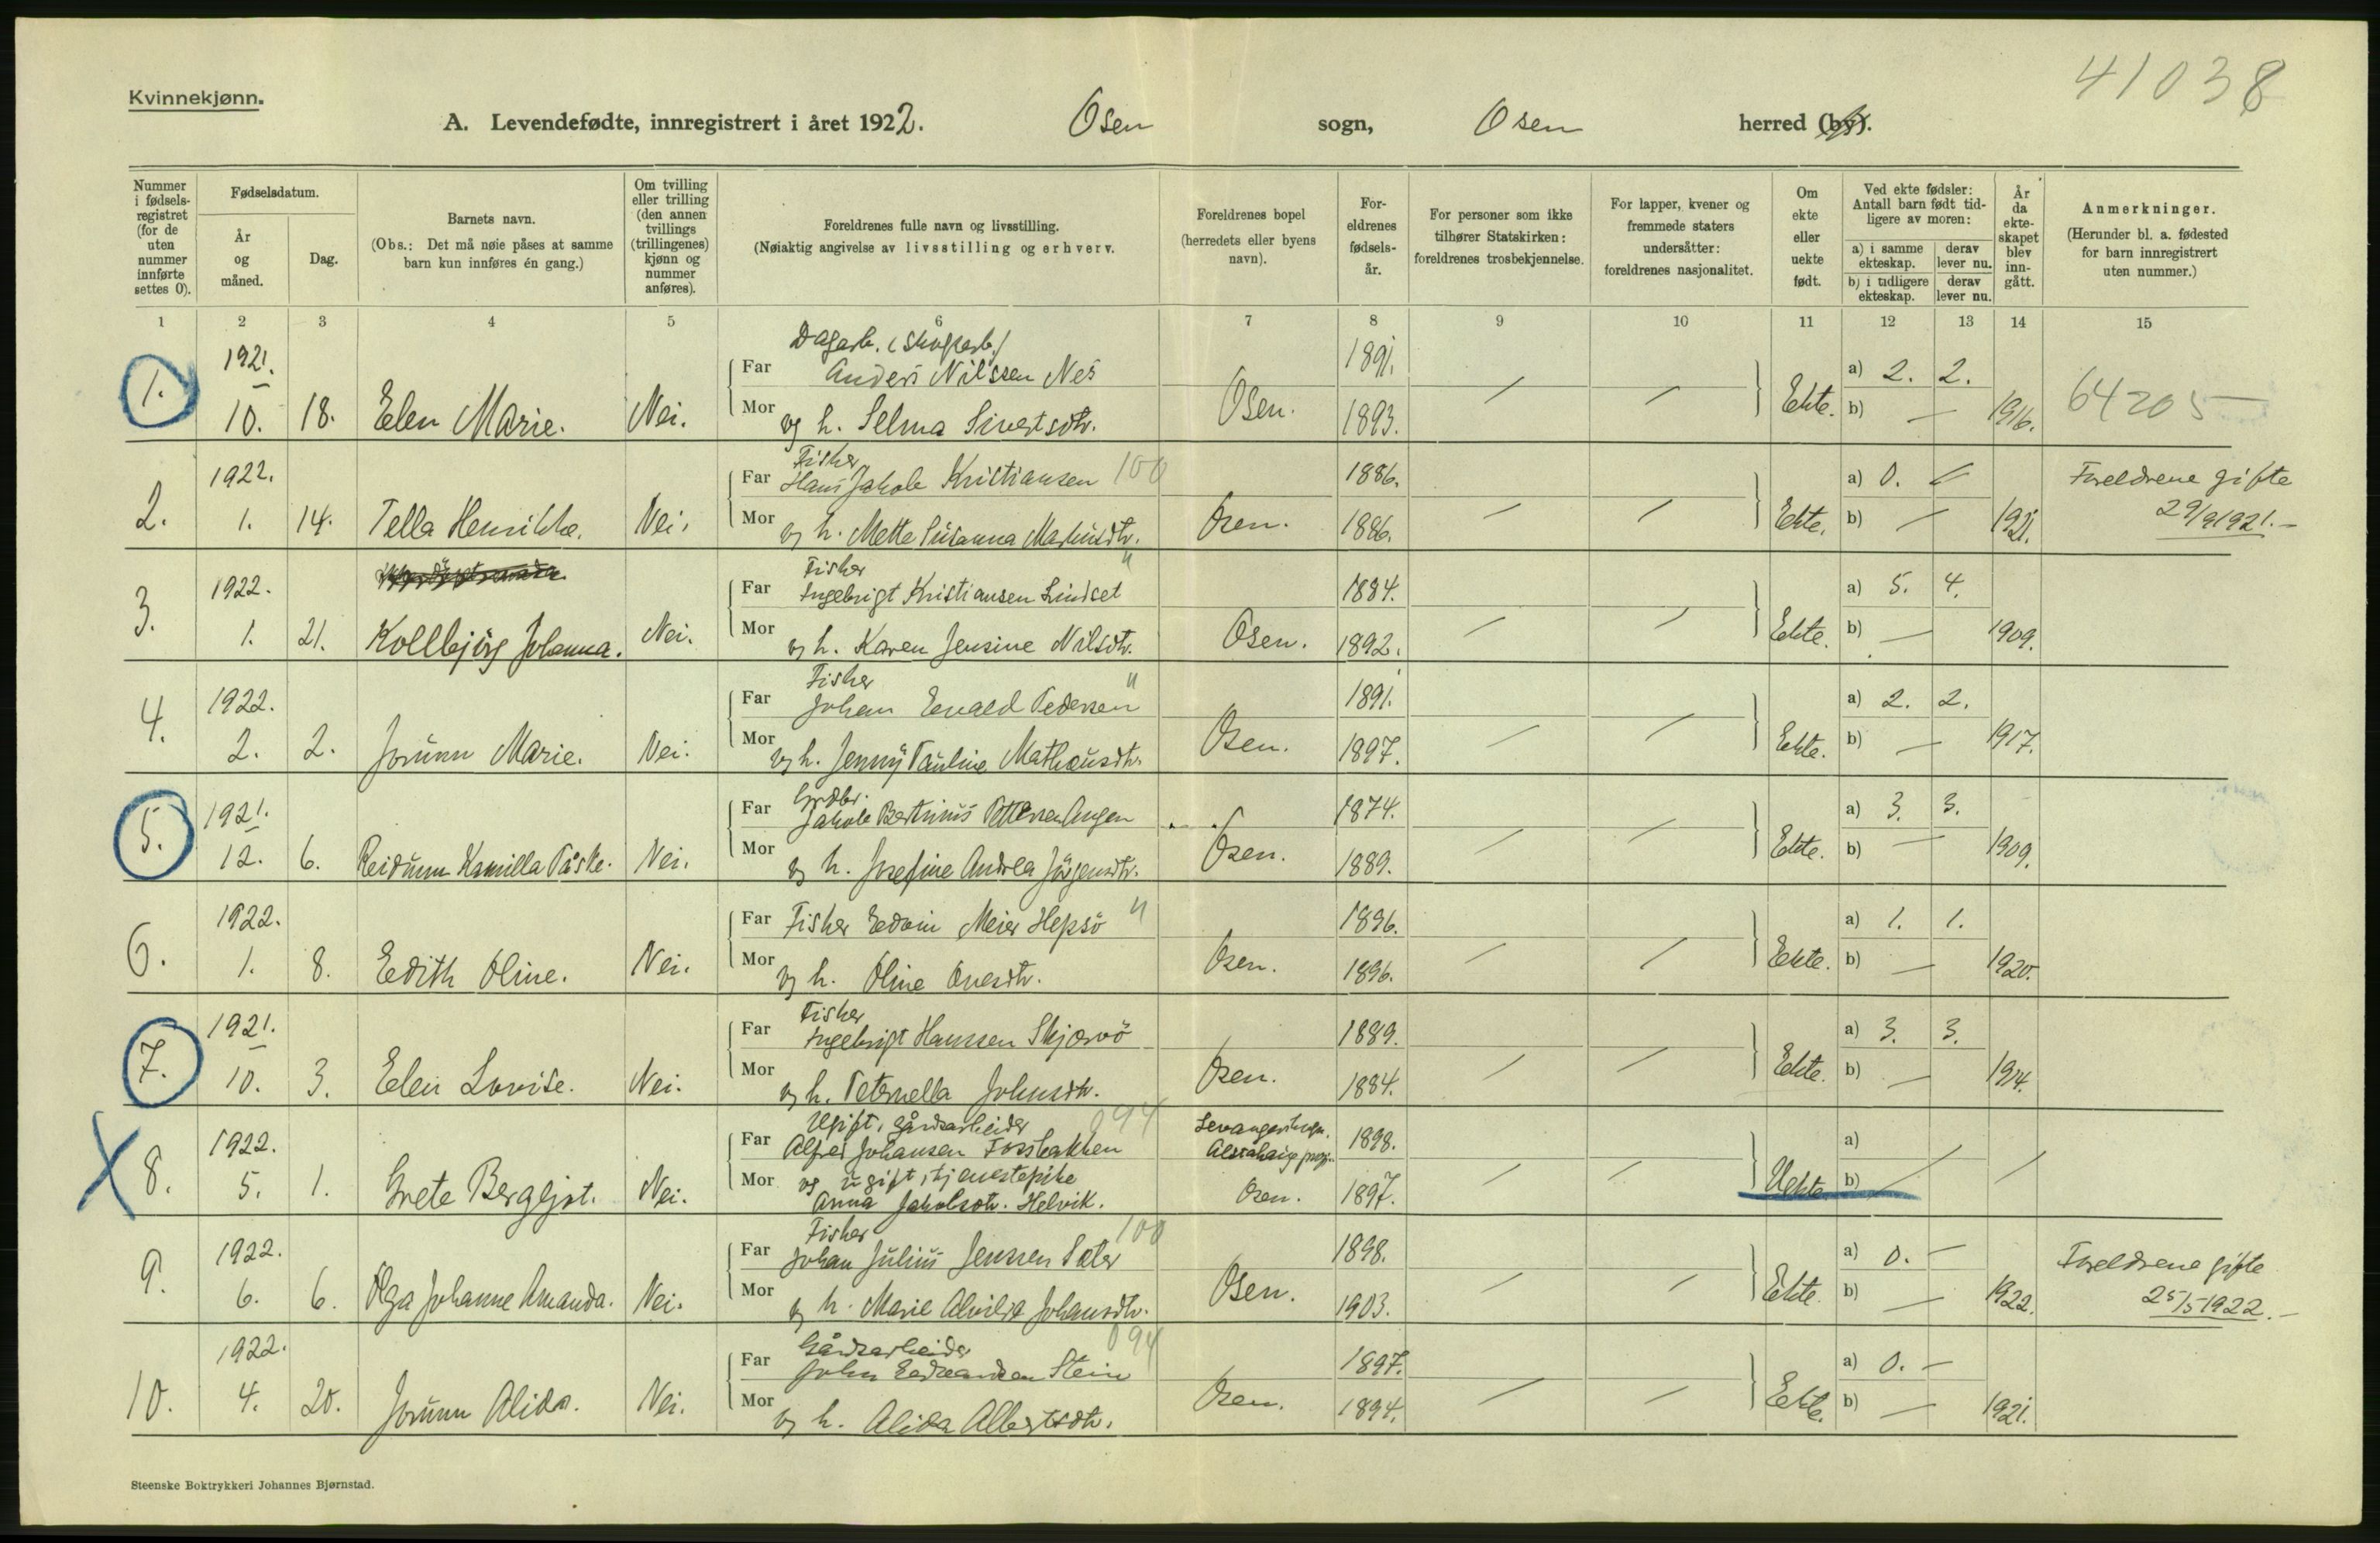 41038
Kvinnekjønn.
A. Levendefødte, innregistrert i året 1922. Osen sogn, Osen herred (by).
Nummer i fødselsregistret (for de uten nummer innførte settes 0).
Fødselsdatum.
År og måned.
Dag.
Barnets navn.
(Obs.: Det må nøie påses at samme barn kun innføres én gang.)
Om tvilling eller trilling (den annen tvillings (trillingenes) kjønn og nummer anføres).
Foreldrenes fulle navn og livsstilling.
(Nøiaktig angivelse av livsstilling og erhverv.
Foreldrenes bopel (herredets eller byens navn).
Foreldrenes fødselsår.
For personer som ikke tilhører Statskirken: foreldrenes trosbekjennelse.
For lapper, kvener og fremmede staters undersåtter: foreldrenes nasjonalitet.
Om ekte eller uekte født.
Ved ekte fødsler: Antall barn født tidligere av moren:
a) i samme ekteskap. derav lever nu.
b) i tidligere ekteskap. derav lever nu.
År da ekteskapet blev inngått.
Anmerkninger.
(Herunder bl. a. fødested for barn innregistrert uten nummer.)
1 2 3 4 5 6 7 8 9 10 11 12 13 14 15
Dagarb. (skogsarb.)
1921. Far Anders Nilssen Nes 1891. a) 2. 2.
1. 10. 18. Elen Marie. Nei. Mor og h. Selma Sivertsdtr. Osen. 1893. / / Ekte. b) — 1916. 64205
Fisker
1922. Far Hans Jakob Kristiansen 100 1886. a) 0. Foreldrene gifte
2. 1. 14. Tella Henrikke. Nei. Mor og h. Mette Susanna Martinsdtr. Osen. 1886. / / Ekte. b) — 1921. 29/9 1921.—
Fisker "
1922. Far Ingebrigt Kristiansen Lindset 1884. a) 5. 4.
3. 1. 21. Kollbjörg Johanna. Nei. Mor og h. Karen Jensine Nilsdtr. Osen. 1892. / / Ekte. b) — 1909.
Fisker "
1922. Far Johan Edvald Pedersen 1891. a) 2. 2.
4. 2. 2. Jorunn Marie. Nei. Mor og h. Jenny Pauline Mathæusdtr. Osen. 1897. / / Ekte. b) — 1917.
Grdbr.
1921. Far Jakob Bertinus Angen 1874. a) 3. 3.
5. 12. 6. Reidunn Kamilla Påske. Nei. Mor og h. Josefine Andrea Jörgensdtr. Osen. 1889. / / Ekte. b) — 1909.
1922. Far Fisker Edvin Meier Hepsö " 1896. a) 1. 1.
6. 1. 8. Edith Oline. Nei. Mor og h. Oline Ovesdtr. Osen. 1896. / / Ekte. b) — 1920.
Fisker
1921. Far Ingebrigt Hanssen Skjærvö 1889. a) 3. 3.
7. 10. 3. Elen Lovise. Nei. Mor og h. Peternella Johnsdtr. Osen. 1884. / / Ekte. b) — 1914.
Ugift, gårdsarbeider 094
1922. Far Alfred Johansen Fossbakken 1898. a)
8. 5. 1. Grete Bergljot. Nei. Mor og ugift, tjenestepike Anna Jakobsdtr. Helvik. Osen. 1897. / / Uekte. b) / /
Fisker 100
1922. Far Johan Julius Jenssen Sæter 1898. a) 0. — Foreldrene gifte
9. 6. 6. Olga Johanne Amanda. Nei. Mor og h. Marie Alvilda Johansdtr. Osen. 1903. / / Ekte. b) — 1922. 25/5 1922.—
Gårdsarbeider 094
1922. Far John Stein 1897. a) 0. —
10. 4. 20. Jorunn Alida. Nei. Mor og h. Alida Albertsdtr. Osen. 1894. / / Ekte. b) — 1921.
Steenske Boktrykkeri Johannes Bjørnstad.